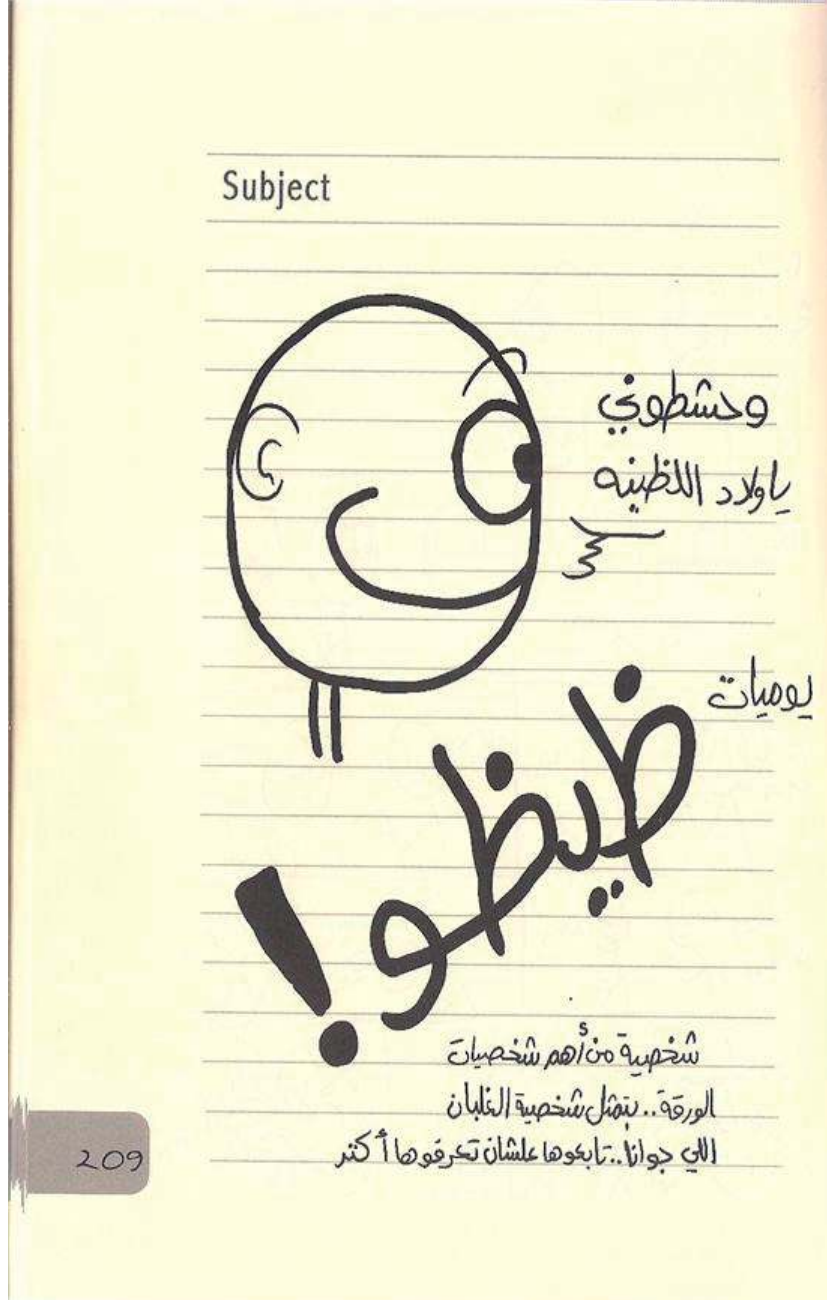 Subject
وحشطوني
ياولاد اللظينه
يوميات
ظيظو!
شخصية من أهم شخصيات
الورقة.. بتمثل شخصية الغلبان
اللي جوانا.. تابعوها علشان تعرفوها أكتر
209